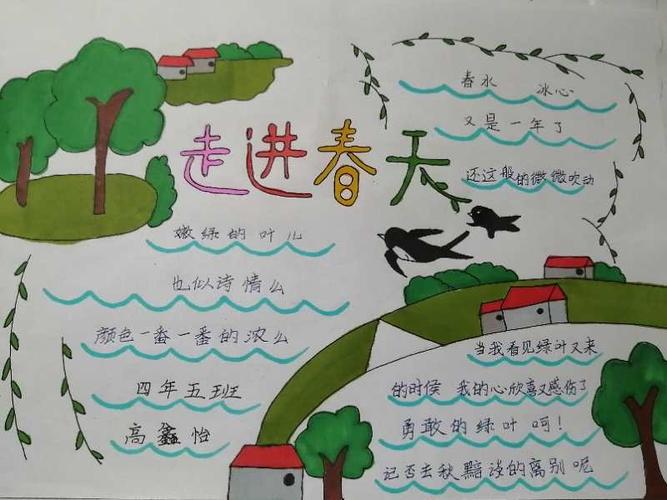 走进春天
春水 冰心
又是一年了
还这般的微微吹动
嫩绿的叶儿
也似诗情么
颜色一番一番的浓么
四年五班
高鑫怡
当我看见绿叶又来
的时候 我的心欣喜又感伤了
勇敢的绿叶呵！
记否去秋黯淡的离别呢